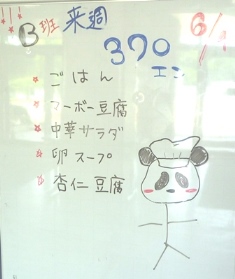 B班 来週
6/
370
エン
ごはん
マーボー豆腐
中華サラダ
卵スープ
杏仁豆腐